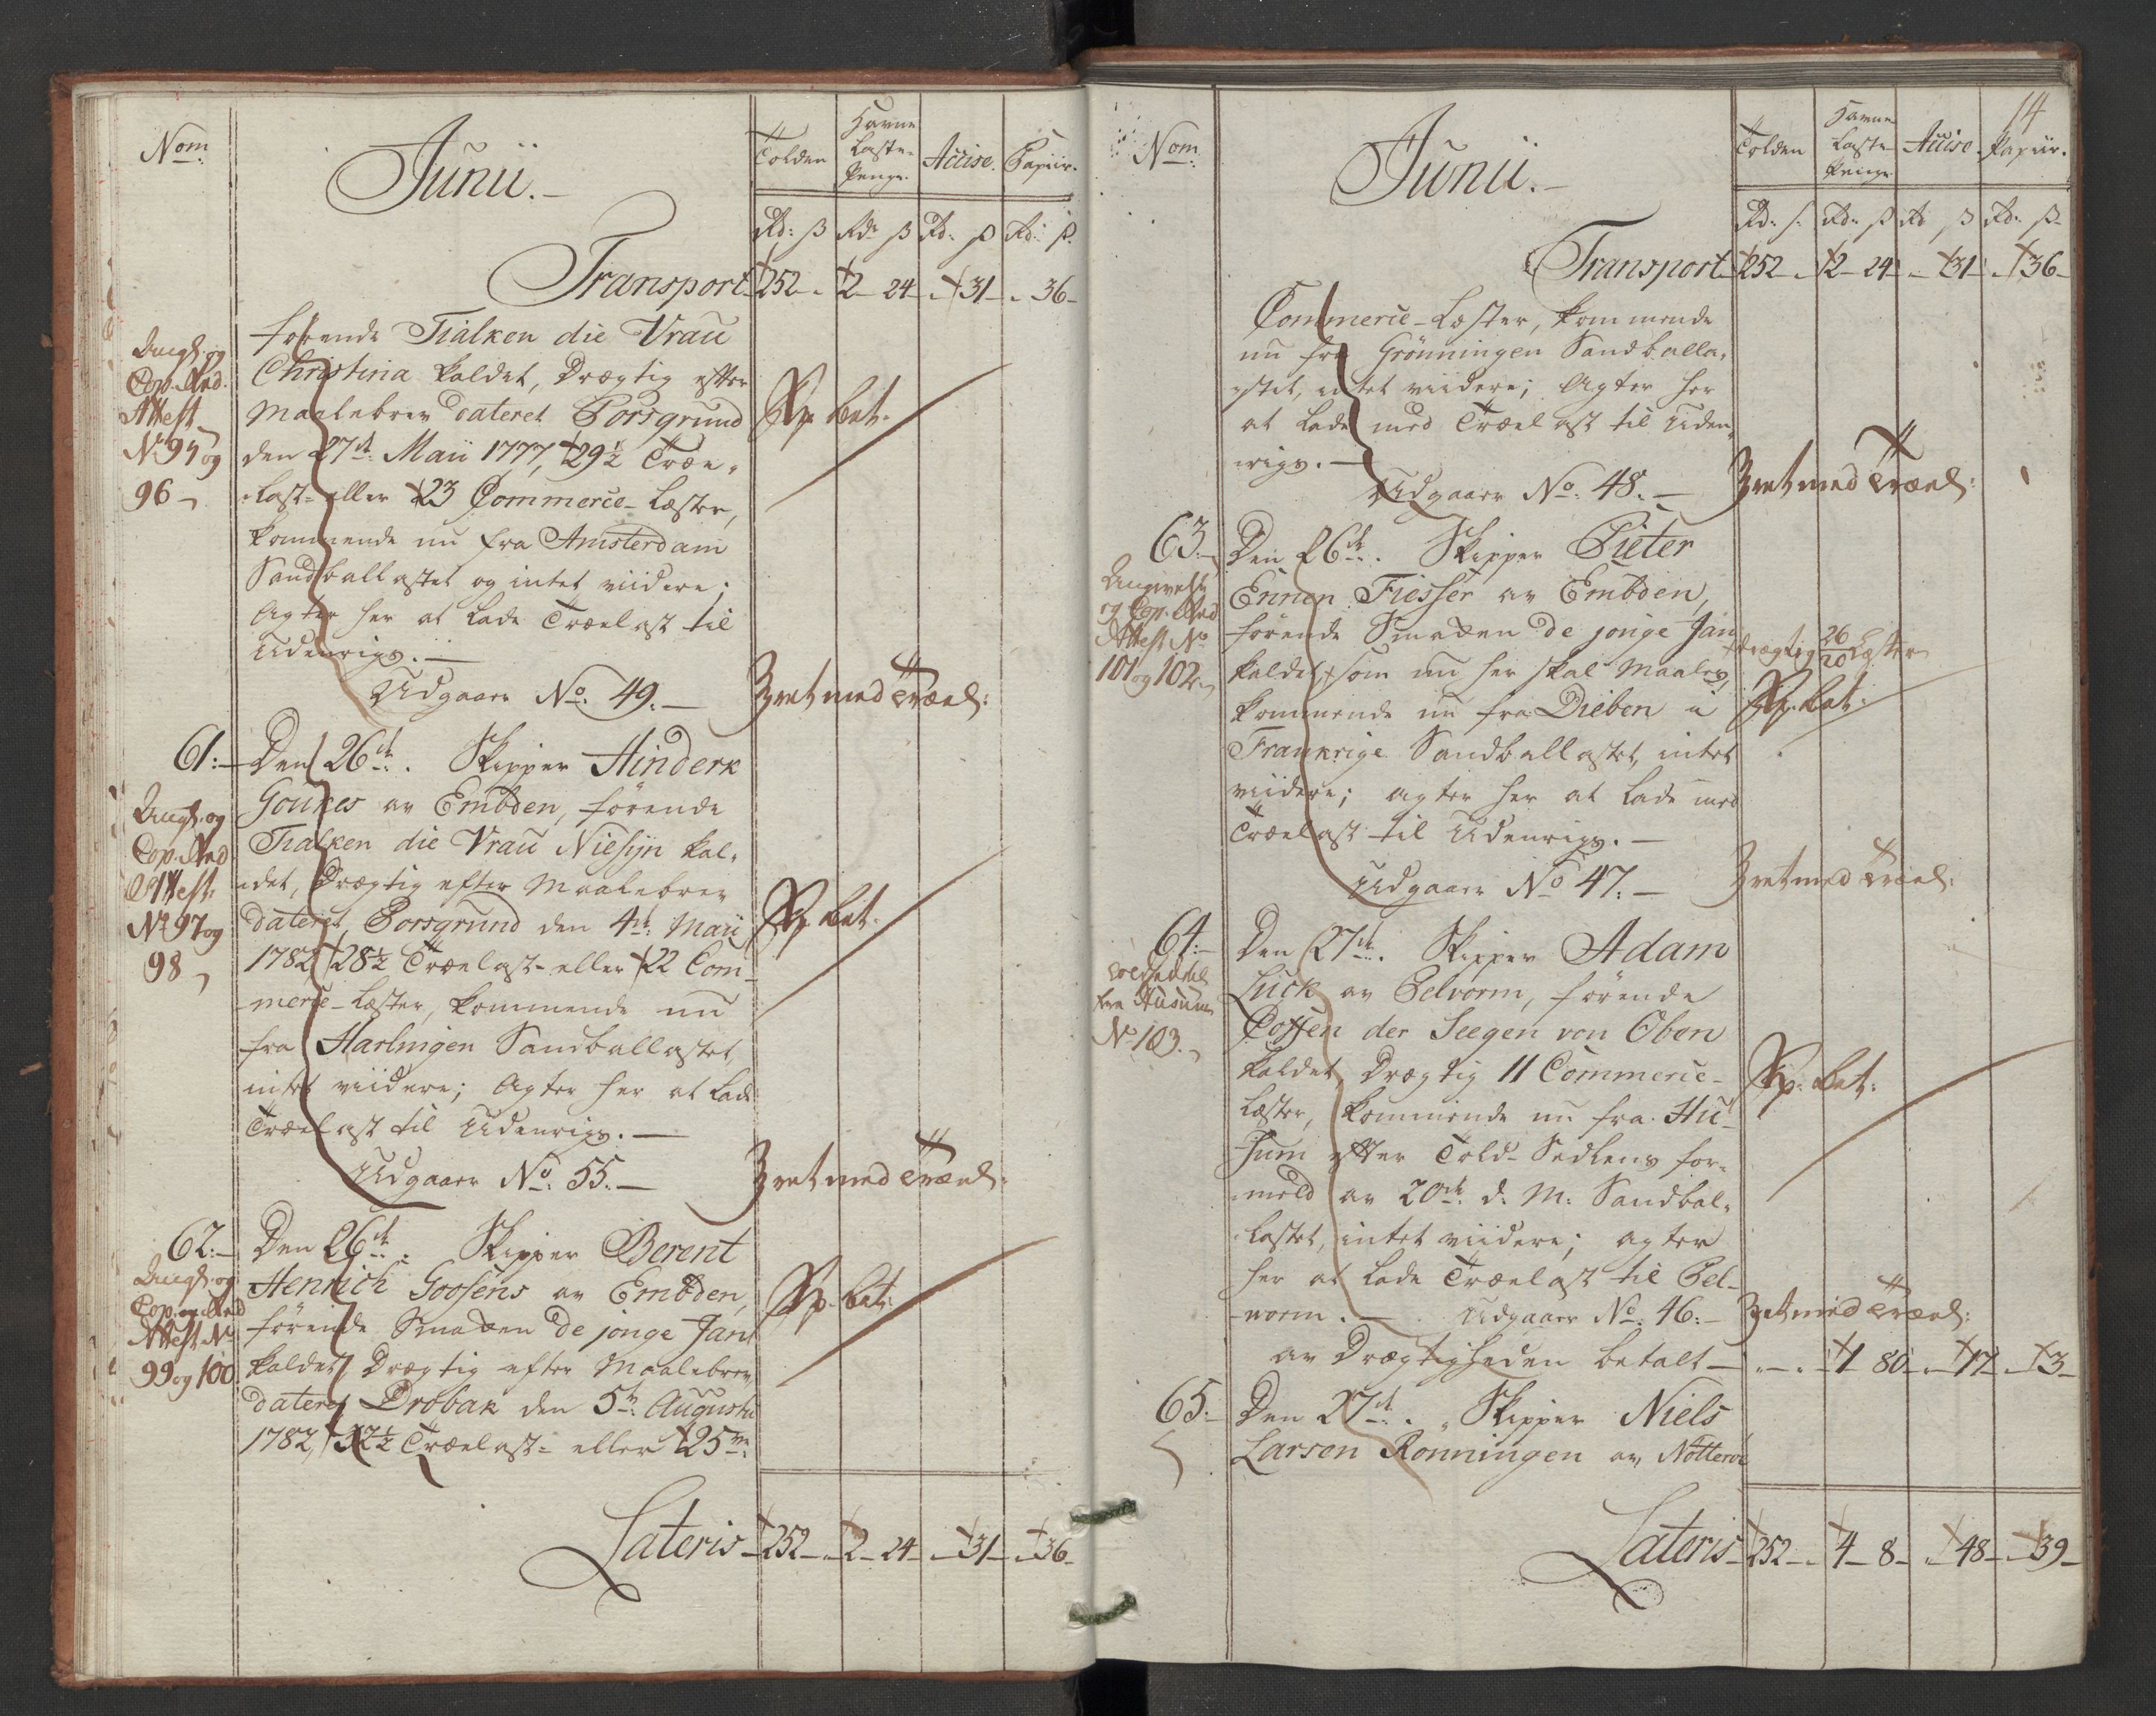 Nom
Junii.
Tolden
Havne
Laste-
Penge.
Accise.
Papiir.
Rd: ß Rdr ß Rd. ß Rd: ß.
Transport 252 - " 2 - 24 - " 31 - " 36 -
førende Tialken die Vrau
Christina kaldet, Drægtig efter
Maalebrev dateret Porsgrund
den 27de Maii 1777, 29½ Træe-
last- eller 23 Commerce-Læster,
kommende nu fra Amsterdam
Sandballastet og intet viidere;
Agter her at lade Trælast til
Udenrigs. —
Udgaaer No. 49. —
Angl. og
Cop. Nad.
Attest
No 95 og
96
Sp. bet.
Zret med Træel:
61:- Den 26de. Skipper Hinderk
Goukes av Embden, førende
Tialken die Vrau Niesijn kal-
det, Drægtig efter Maalebrev
dateret Porsgrund den 4de Maii
1782 28½ Trælast- eller 22 Com-
merce-Læster, kommende nu
fra Harlingen Sandballastet,
intet viidere; Agter her at lade
Trælast til Udenrigs. —
Udgaaer No. 55. —
Angl. og
Cop. Nad
Attest
No 97 og
98
Sp. bet.
Zret med Træel:
62:- Den 26de. Skipper Berent
Henrich Goosens av Embden,
førende Smaken de jonge Jan
kaldet, Drægtig efter Maalebrev
dateret Drobak den 5te Augusti
1782, 32½ Trælast- eller 25
Angl. og
Cop. og Nad
Attest No
99 og 100
Sp. bet:
Lateris 252 - " 2 - 24 - " 31 - " 36 -
14
Nom.
Junii.
Tolden
Havne
Laste
Penge
Accise.
Papiir.
Rd. ß. Rd. ß Rd ß Rd. ß
Transport 252 - " 2 - 24 - " 31 - " 36 -
Commerce-Læster, kommende
nu fra Grønningen Sandballa-
stet, intet viidere; Agter her
at lade med Trælast til Uden-
rigs. —
Udgaaer No. 48. —
Zret med Træel:
63.- Den 26de. Skipper Pieter
Ennen Fiesser av Embden,
førende Smaken de jonge Jan
kaldet, som nu her skal Maales,
kommende nu fra Dieben i
Frankrige Sandballastet, intet
viidere; agter her at lade med
Trælast til Udenrigs. —
Udgaaer No 47. —
Angivelse
og Cop. Nad
Attest No
101 og 102
drægtig 26/20 Læster
Sp. bet:
Zret med Træel:
64.- Den 27de. Skipper Adam
Luck av Pelvorm, førende
Coffen der Seegen von Oben
kaldet, Drægtig 11 Commerce-
Læster, kommende nu fra Hu-
sum efter Told-Sedlens for-
meld av 20de d. M: Sandbal-
lastet, intet viidere; agter
her at lade Trælast til Pel-
worm. — Udgaaer No. 46:-
av Drægtigheden betalt — " — " 1 80 - " 17 - " 3 -
Toldseddel
fra Husum
No 103.
Sp: bet:
Zret med Træel:
65:- Den 27de. Skipper Niels
Larsen Rønningen av Nøtterøe
Lateris 252 - " 4 - 8 - " 48 - " 39 -